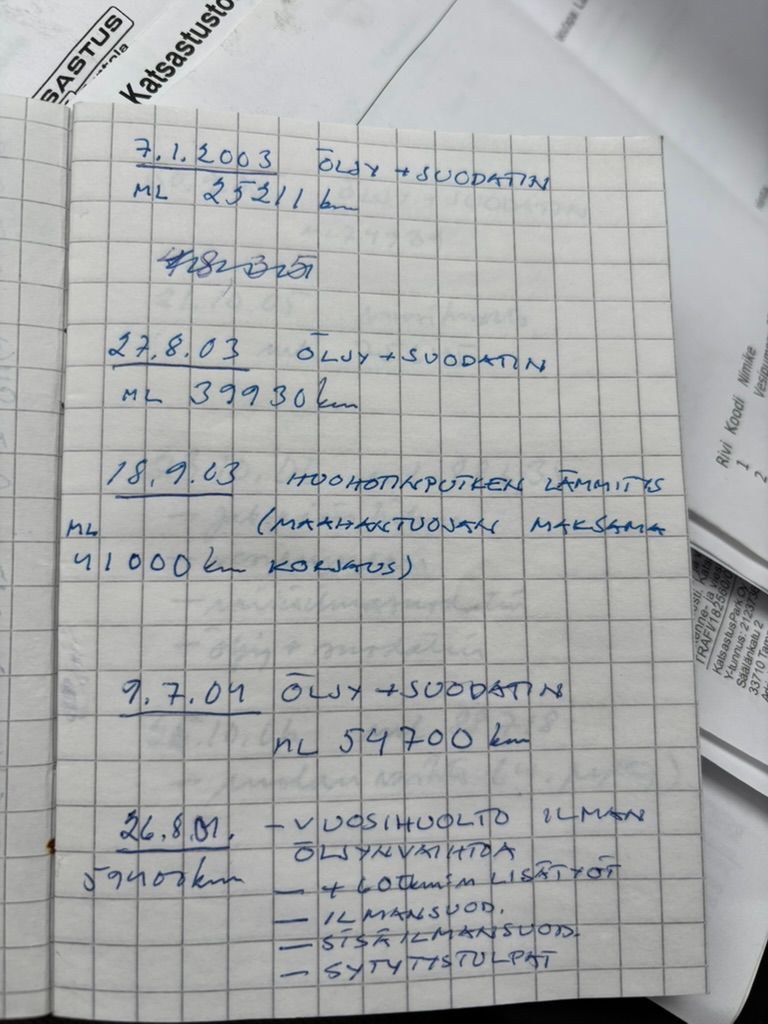 SASTUS
Katsastusto
7.1.2003 ÖLJY + SUODATIN
ML 25211 km
27.8.03 ÖLJY + SUODATIN
ML 39930 km
18.9.03 HUOHOTINPUTKEN LÄMMITYS
ML (MAAHANTUOJAN MAKSAMA
41000 km KORJAUS)
9.7.04 ÖLJY + SUODATIN
ML 54700 km
26.8.01. - VUOSIHUOLTO ILMAN
ÖLJYNVAIHTOA
59400 km
- + 60tkm:n LISÄTYÖT
- ILMANSUOD.
- SISÄILMANSUOD.
- SYTYTYSTULPAT
Rivi Koodi Nimike
1
2
KatsastusPark Oy
Y-tunnus:
33710